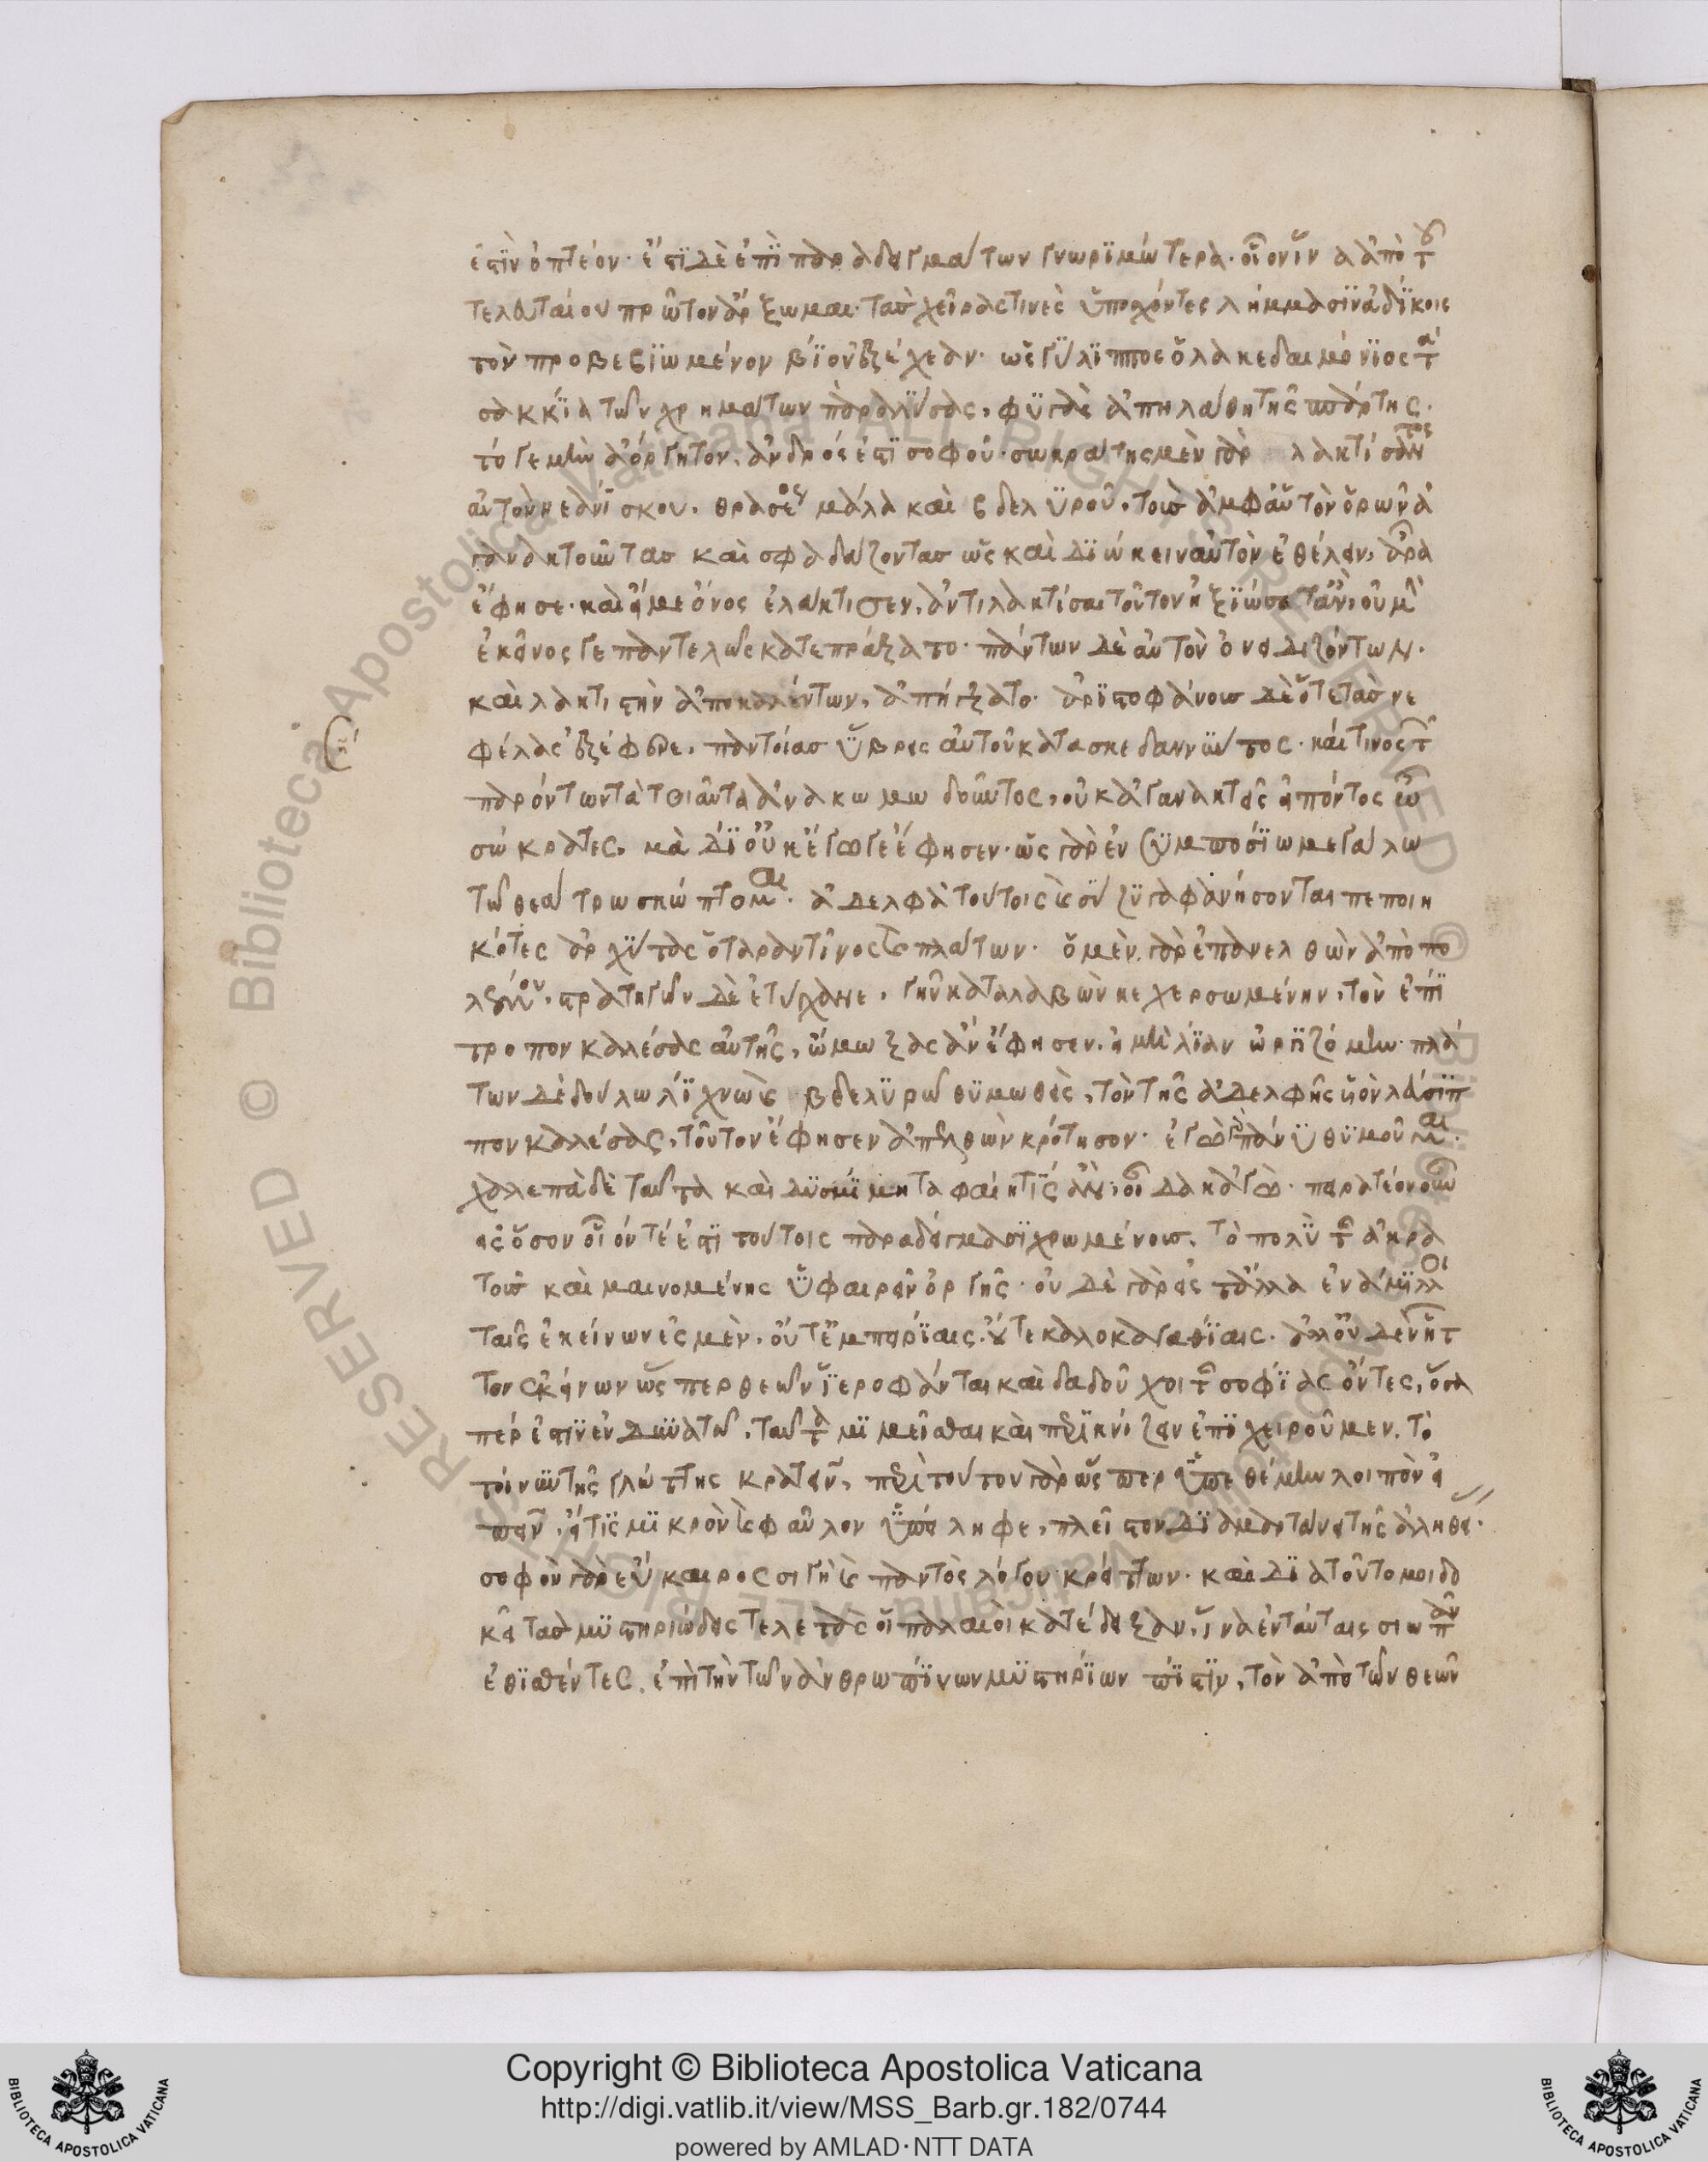 ἐστὶν ὀπτέον· ἔστι δὲ ἐπὶ παραδειγμάτων γνωριμώτερα· οἷον ἵν' ἀπὸ τοῦ
τελευταίου πρῶτον ἄρξωμαι· τὰς χεῖρας τινὲς ὑποσχόντες λήμμασιν ἀδίκοις
τὸν προβεβιωμένον βίον ἐξέχεαν· ὡς γύλιππος ὁ λακεδαιμόνιος τὰ
σακκία τῶν χρημάτων παραλύσας, φυγὰς ἀπηλάθη τῆς σπάρτης·
τό γε μὴν ἀόργητον, ἀνδρός ἐστι σοφοῦ· σωκράτης μὲν γὰρ λακτίσαντος
αὐτὸν νεανίσκου, θρασέος μάλα καὶ βδελυροῦ, τοὺς ἀμφ' αὐτὸν ὁρῶν ἀ
γανακτοῦντας καὶ σφαδάζοντας ὡς καὶ διώκειν αὐτὸν ἐθέλειν, ἆρα
ἔφησε· καὶ εἴ με ὄνος ἐλάκτισεν, ἀντιλακτίσαι τοῦτον ἠξιώσατ' ἄν; οὐ μὴν
ἐκεῖνός γε παντελῶς κατεπράξατο· πάντων δὲ αὐτὸν ὀνειδιζόντων·
καὶ λακτιστὴν ἀποκαλούντων, ἀπήγξατο· ἀριστοφάνους δὲ ὅτε τὰς νε
φέλας ἐξέφερε, παντοίας ὕβρεις αὐτοῦ κατασκεδαννύντος· καί τινος τῶν
παρόντων τὰ τοιαῦτα ἀνακωμωδοῦντος, οὐκ ἀγανακτεῖς εἰπόντος ὦ
σώκρατες, μὰ δί' οὐκ ἔγωγε ἔφησεν· ὡς γὰρ ἐν συμποσίω μεγάλω
τῶ θεάτρω σκώπτομαι. ἀδελφὰ τούτοις καὶ σύζυγα φανήσονται πεποιη
κότες ἀρχύτας ὁ ταραντῖνος καὶ πλάτων· ὁ μὲν γὰρ ἐπανελθὼν ἀπὸ πο
λέμου, στρατηγῶν δὲ ἐτύγχανε, γῆν καταλαβὼν κεχερσωμένην, τὸν ἐπί
τροπον καλέσας αὐτῆς, ὤμωξας ἂν ἔφησεν, εἰ μὴ λίαν ὠργιζόμην· πλά
των δὲ δούλω λίχνω καὶ βδελυρῶ θυμωθεὶς, τὸν τῆς ἀδελφῆς υἱὸν λεύσιπ
πον καλέσας, τοῦτον ἔφησεν ἀπελθὼν κρότησον· ἐγὼ γὰρ πάνυ θυμοῦμαι.
χαλεπὰ δὲ ταῦτα καὶ δυσμίμητα φαίη τὶς ἄν; οἶδα κἀγώ· πειρατέον οὖν
εἰς ὅσον οἷόν τέ ἐστι τούτοις παραδείγμασι χρωμένους, τὸ πολὺ τῆς ἀκρα
τοῦς καὶ μαινομένης ὑφαιρεῖν ὀργῆς· οὐδὲ γὰρ εἰς τἄλλα ἐνάμιλλοι
ταῖς ἐκείνων ἐσμὲν, οὔτ' ἐμπειρίαις, οὔτε καλοκἀγαθίαις. ἀλλ' οὐδὲν ἧττ
τον ἐκείνων ὥσπερ θεῶν ἱεροφάνται καὶ δαδοῦχοι τῆς σοφίας ὄντες, ὅσα
πέρ ἐστιν ἐν δυνατῶ, ταῦτα μιμεῖσθαι καὶ περικνίζειν ἐπιχειροῦμεν, τὸ
τοίνυν τῆς γλώττης κρατεῖν, περὶ τούτου γὰρ ὥσπερ ὑπεθέμην λοιπὸν εἰ
πεῖν, εἴ τις μικρὸν καὶ φαῦλον ὑπείληφε, πλεῖστον διαμαρτάνει τῆς ἀληθεί.
σοφὸν γὰρ εὔκαιρος σιγὴ καὶ παντὸς λόγου κρεῖττων· καὶ διὰ τοῦτο μοι δο
κεῖ τὰς μυστηριώδεις τελετὰς οἱ παλαιοὶ κατέδειξαν, ἵνα ἐν ταύταις σιωπᾶν
ἐθισθέντες, ἐπὶ τὴν τῶν ἀνθρωπίνων μυστηρίων πίστιν, τὸν ἀπὸ τῶν θεῶν
Copyright © Biblioteca Apostolica Vaticana
http://digi.vatlib.it/view/MSS_Barb.gr.182/0744
powered by AMLAD·NTT DATA